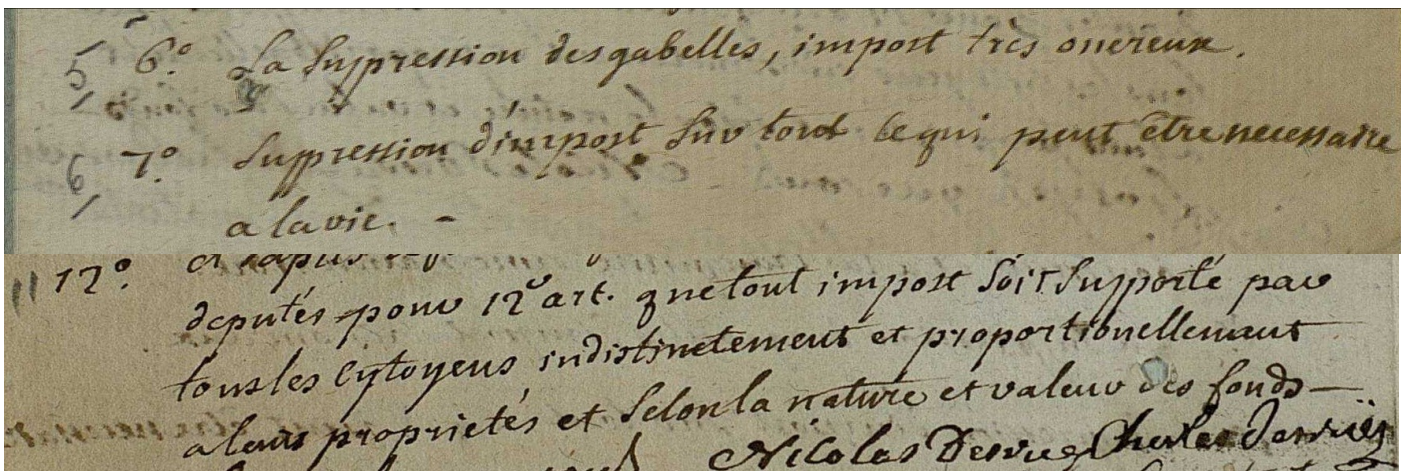 5 6.° La Suppression des gabelles, impost très onereux.
6 7.° Suppression d'impost sur tout ce qui peut être necessaire
a la vie. -
11 12.°
deputés pour 12.e art. que tout impost soit Supporté par
tous les Cytoyens indistinctement et proportionellemant
a leurs proprietés et Selon la nature et valeur des fonds—
Nicolas Charles